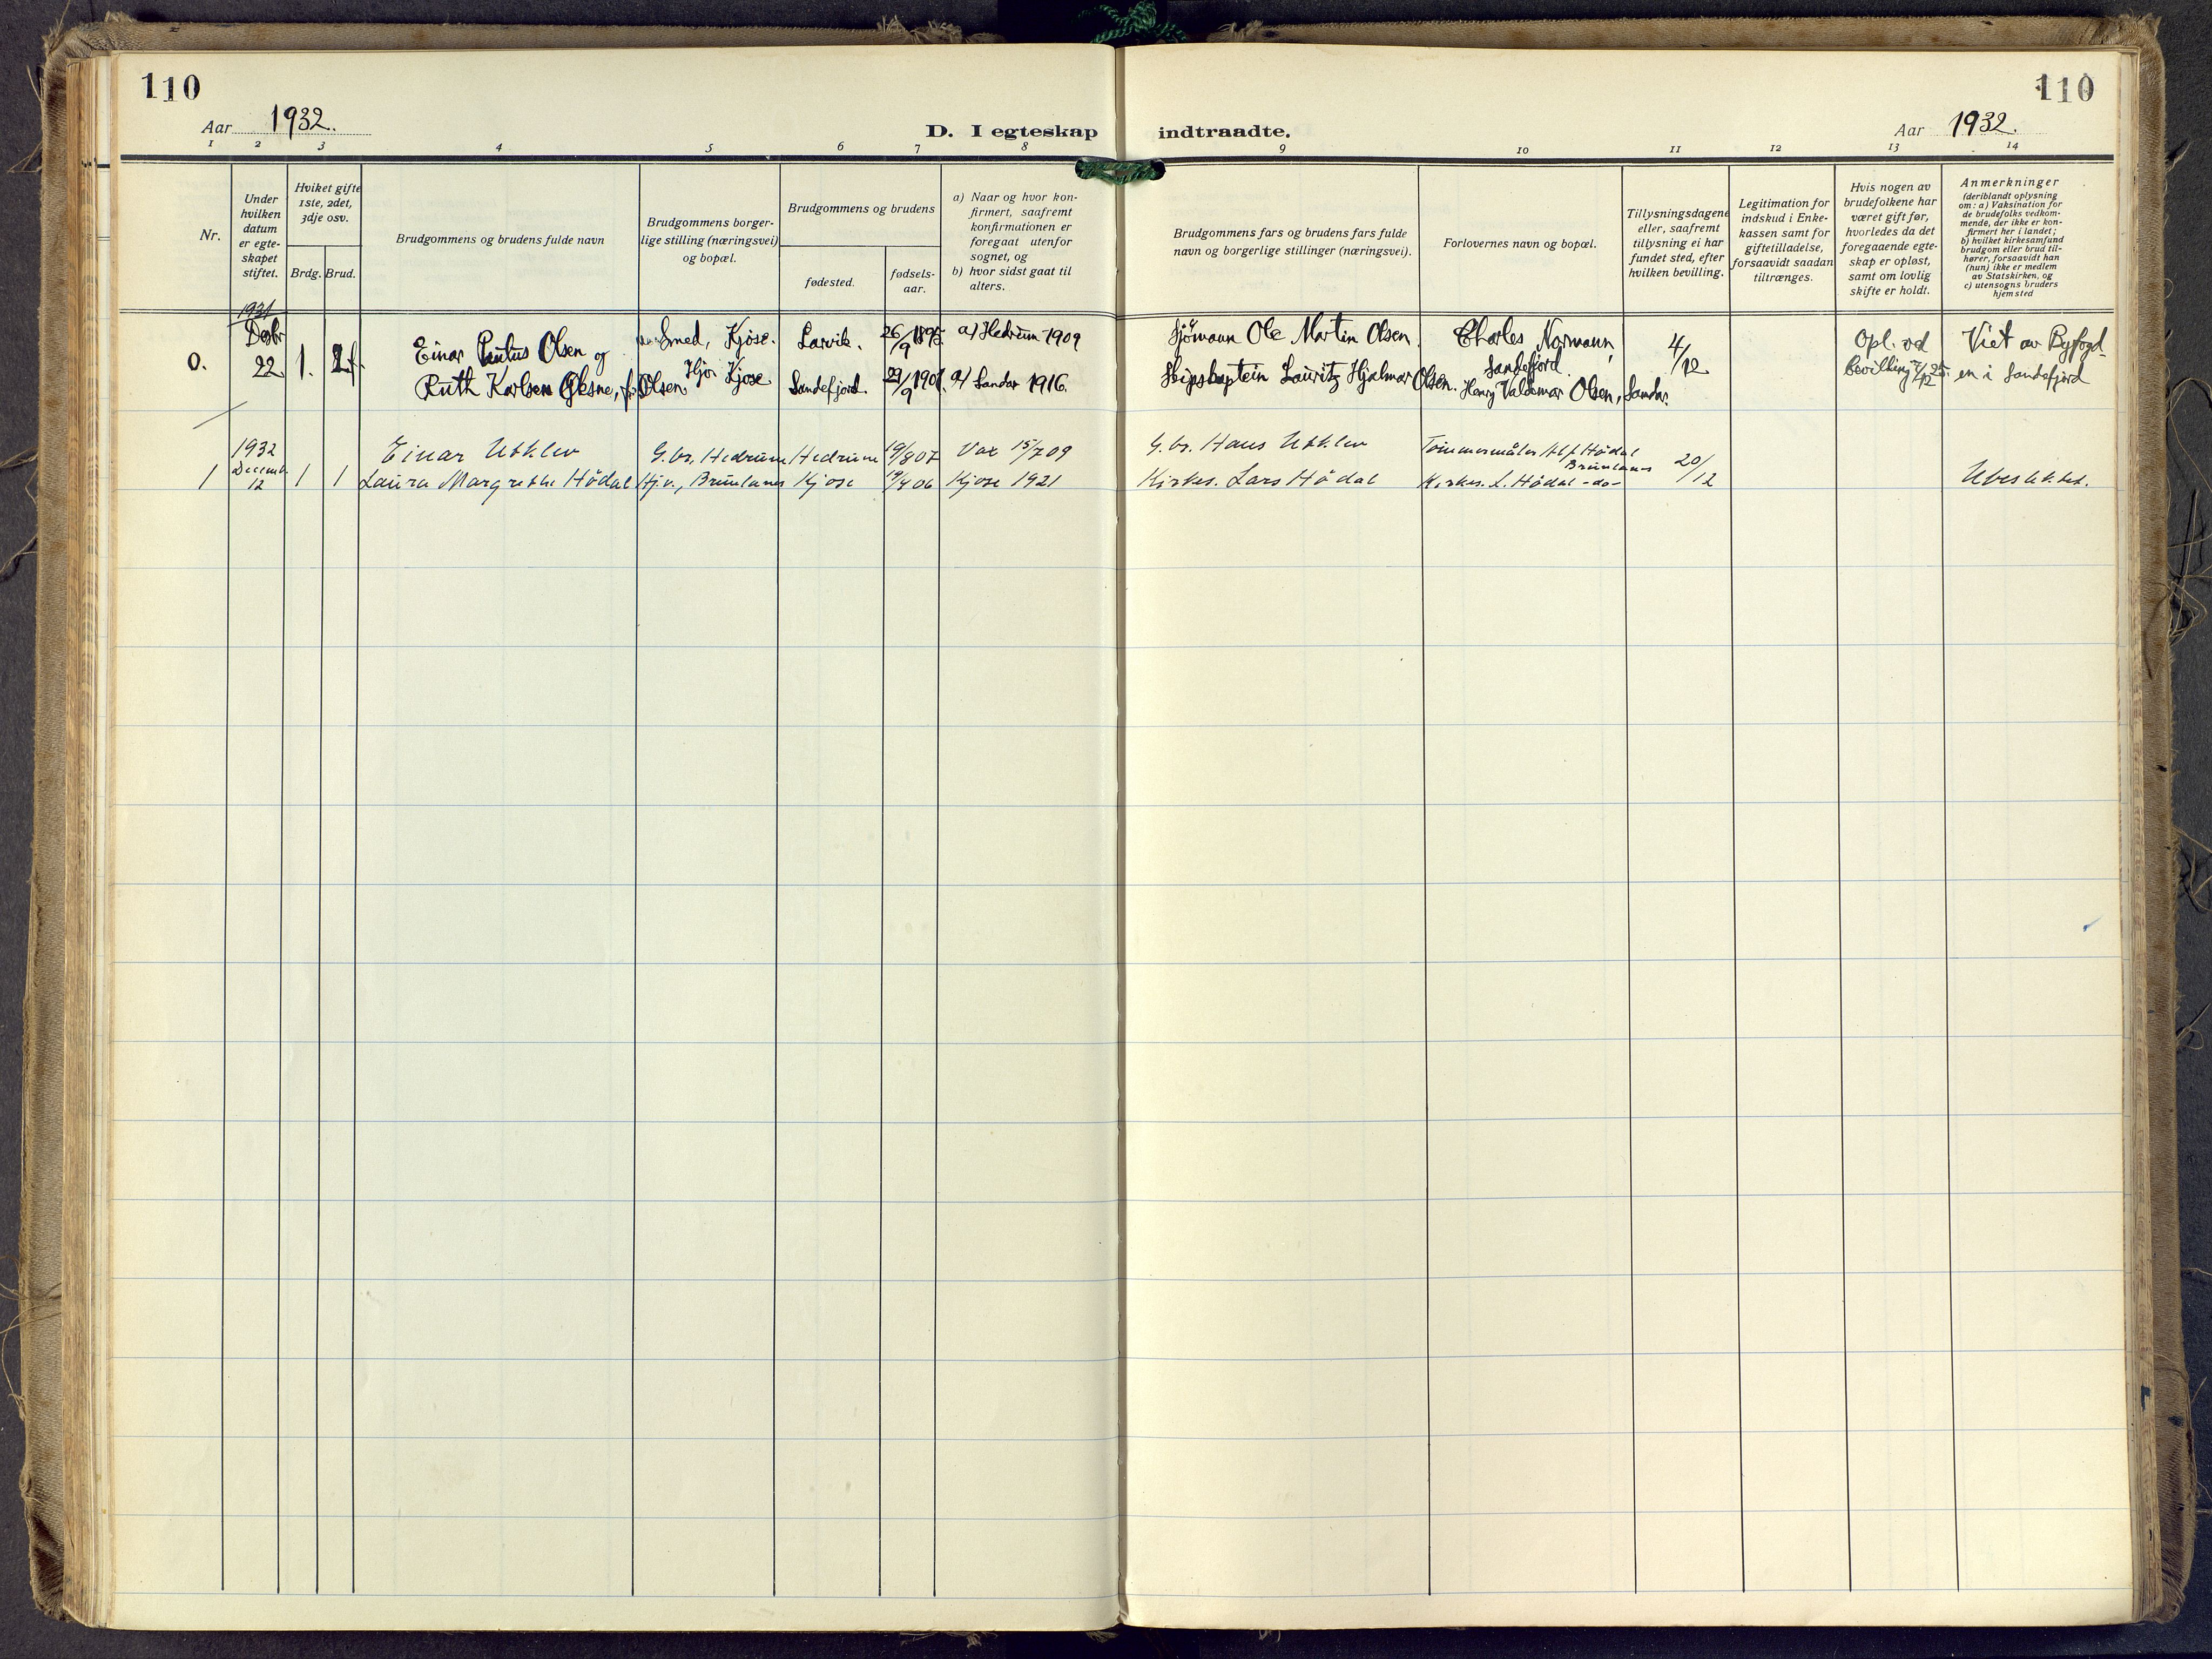 110
110
Aar 1932.
D. I egteskap indtraadte.
Aar 1932.
1 2 3 4 5 6 7 8 9 10 11 12 13 14
Nr.
Under hvilken datum er egte-skapet stiftet.
Hviket gifte 1ste, 2det, 3dje osv.
Brdg. Brud.
Brudgommens og brudens fulde navn
Brudgommens borger-
lige stilling (næringsvei)
og bopæl.
Brudgommens og brudens
fødested.
fødsels-
aar.
a) Naar og hvor kon-
firmert, saafremt
konfirmationen er
foregaat utenfor
sognet, og
b) hvor sidst gaat til
alters.
Brudgommens fars og brudens fars fulde
navn og borgerlige stillinger (næringsvei).
Forlovernes navn og bopæl.
Tillysningsdagene
eller, saafremt
tillysning ei har
fundet sted, efter
hvilken bevilling.
Legitimation for
indskud i Enke-
kassen samt for
giftetilladelse,
forsaavidt saadan
tiltrænges.
Hvis nogen av
brudefolkene har
været gift før,
hvorledes da det
foregaaende egte-
skap er opløst,
samt om lovlig
skifte er holdt.
Anmerkninger
(deriblandt oplysning
om: a) Vaksination for
de brudefolks vedkom-
mende, der ikke er kon-
firmert her i landet;
b) hvilket kirkesamfund
brudgom eller brud til-
hører, forsaavidt han
(hun) ikke er medlem
av Statskirken, og
c) utensogns bruders
hjemsted
1931
Desbr
0. 22 1. 2 f.
Einar Pontus Olsen og
Ruth Karlsen Øksne, f. Olsen.
Smed, Kjose.
Hjv. Kjose
Larvik. 26/9 1895 a) Hedrum 1909
Sandefjord. 29/9 1901. a) Sandar 1916.
Sjömann Ole Martin Olsen.
Skipskaptein Lauritz Hjalmar Olsen.
Charles Normann,
Sandefjord.
Henry Valdemar Olsen, Sandar.
4/12
Opl. ved
bevilling 7/12 25.
Viet av Byfogd-
en i Sandefjord
1932
Decemb.
1 12 1 1
Einar Utklev G.br., Hedrum Hedrum 19/8 07
Laura Margrethe Hödal Hjv., Brunlanes Kjose 19/4 06 Kjose 1921
Vax 15/7 09
G.br. Hans Utklev
Kirkes. Lars Hödal
Tömmermåler Alf Hödal
Brunlanes
Kirkes. L. Hödal -do-
20/12